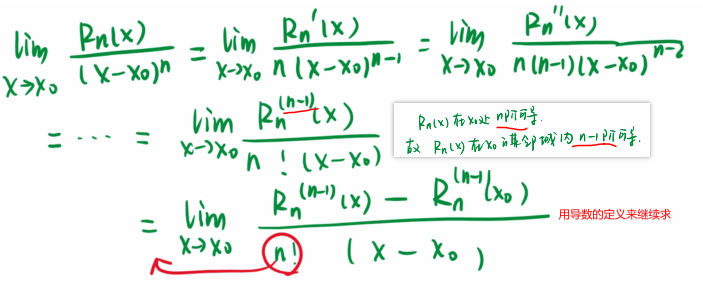 lim x→x₀ Rn(x) / (x-x₀)ⁿ = lim x→x₀ Rn'(x) / n(x-x₀)ⁿ⁻¹ = lim x→x₀ Rn''(x) / n(n-1)(x-x₀)ⁿ⁻²
= ··· = lim x→x₀ Rn⁽ⁿ⁻¹⁾(x) / n!(x-x₀)
Rn(x)在x₀处 n阶可导.
故 Rn(x)在x₀的某邻域内 n-1阶可导.
= lim x→x₀ Rn⁽ⁿ⁻¹⁾(x) - Rn⁽ⁿ⁻¹⁾(x₀) / n! (x-x₀)
用导数的定义来继续求